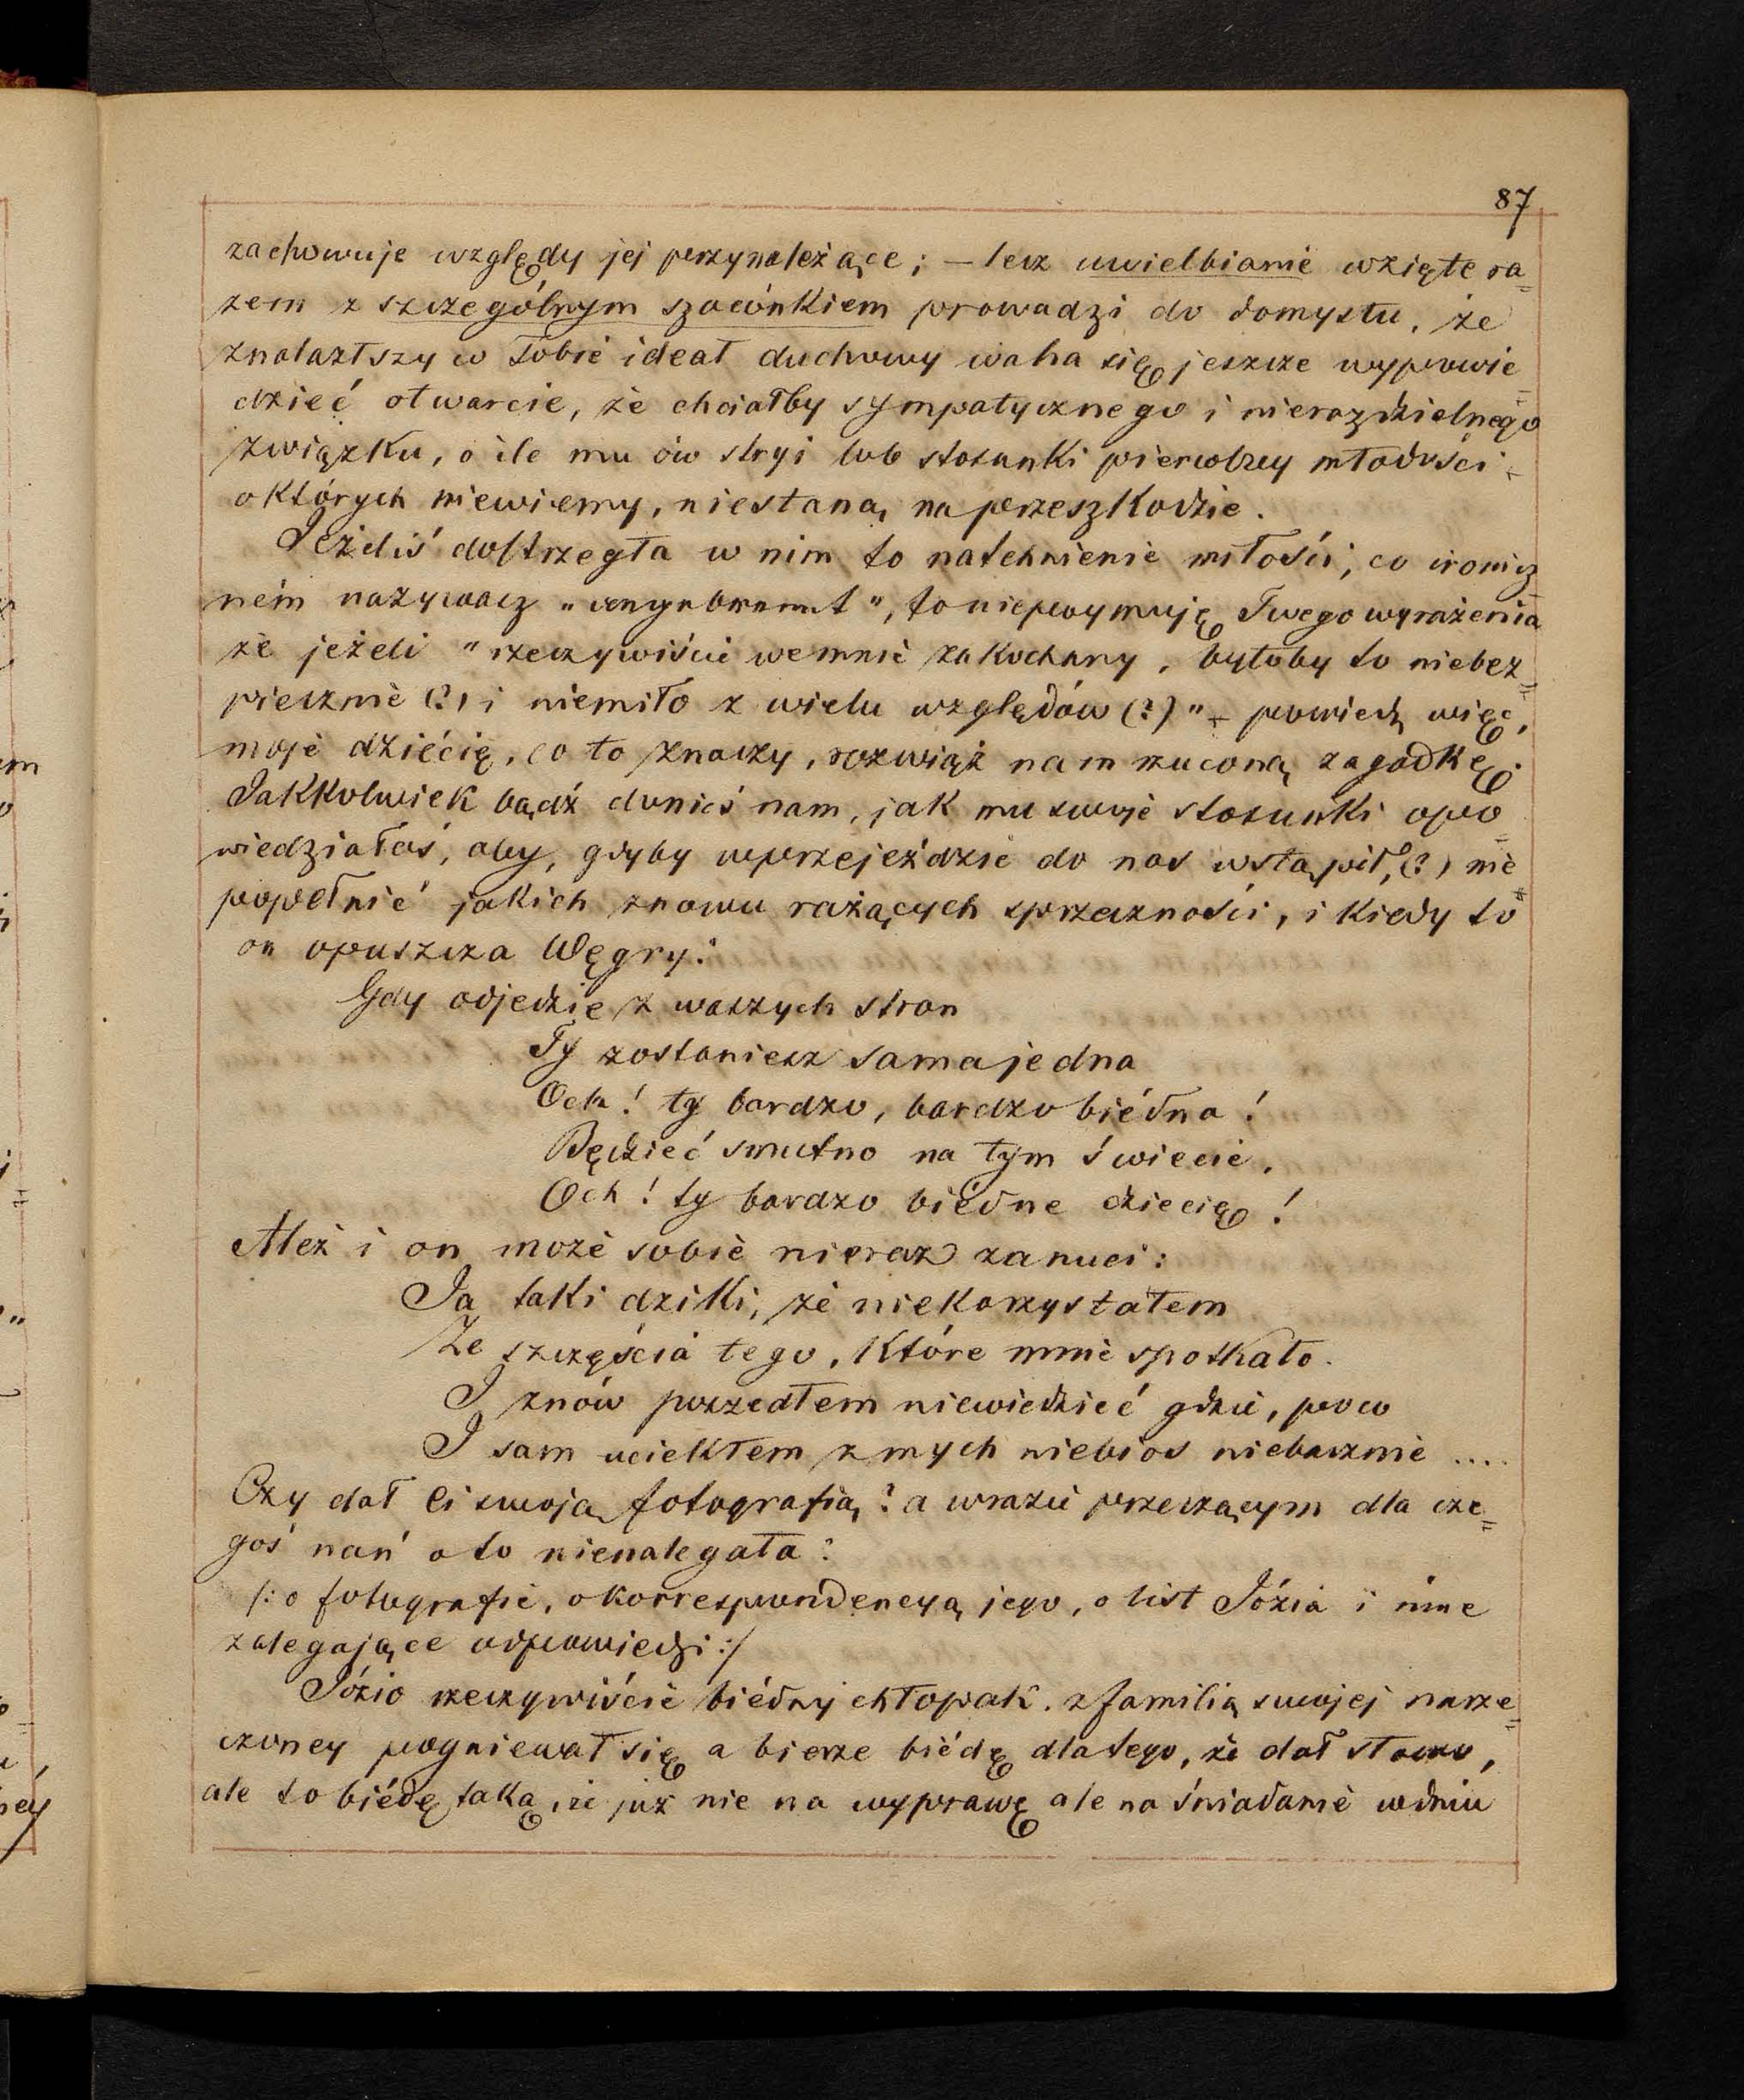 87
zachowuje względy jej przynależące; – lecz uwielbianie wzięte ra=
zem z szczególnym szacónkiem prowadzi do domysłu, że
znalazłszy w Tobie ideał duchowy waha się jeszcze wypowie=
dzieć otwarcie, że chciałby sympatycznego i nierozdzielnego
związku, o ile mu ów stryj lub stosunki pierwszey młodości –
o których niewiemy, niestaną na przeszkodzie.
Jeżeliś dostrzegła w nim to natchnienie miłości, co ironicz=
ném nazywasz "", to niepojmuję Twego wyrażenia
że jeżeli "rzeczywiście wemnie zakochany, byłoby to niebez=
piecznie (?) i niemiło z wielu względów (?)" – powiedz więc,
moje dziécię, co to znaczy, rozwiąż nam rzuconą zagadkę.
Jakkolwiek bądź donieś nam, jak mu swoje stosunki opo=
wiedziałaś, aby, gdyby wprzejeździe do nas wstąpił, (?) nie
popełnić jakich znowu rażących sprzeczności, i kiedy to
on opuszcza Węgry?
Gdy odjedzie z waszych stron
Ty zostaniesz sama jedna
Och! ty bardzo, bardzo biédna!
Będzieć smutno na tym świecie,
Och! ty bardzo biédne dziecię!
Ależ i on może sobie nieraz zanuci:
Ja taki dziki, że niekorzystałem
Ze szczęścia tego, które mnie spotkało.
I znów poszedłem niewiedzieć gdzie, poco
I sam uciekłem z mych niebios niebacznie ....
Czy dał Ci swoją fotografią? a wrazie przeczącym dla cze=
goś nań o to nienalegała?
/: o fotografie, o korrespondencyą jego, o list Józia i inne
zalegające odpowiedzi :/
Józio rzeczywiście biédny chłopak. z familią swojej narze=
czoney pogniewał się a bierze biédę dlatego, że dał słowo,
ale to biédę taką, że już nie na wyprawę ale na śniadanie wdniu